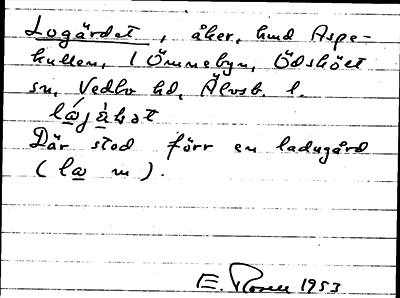 Logärdet, åker, hmd Aspe-
kullen, 1 Ömmebyn, Ödskölt
sn, Vedbo hd, Älvsb. l.
Där stod förr en ladugård
E. Rosell 1953